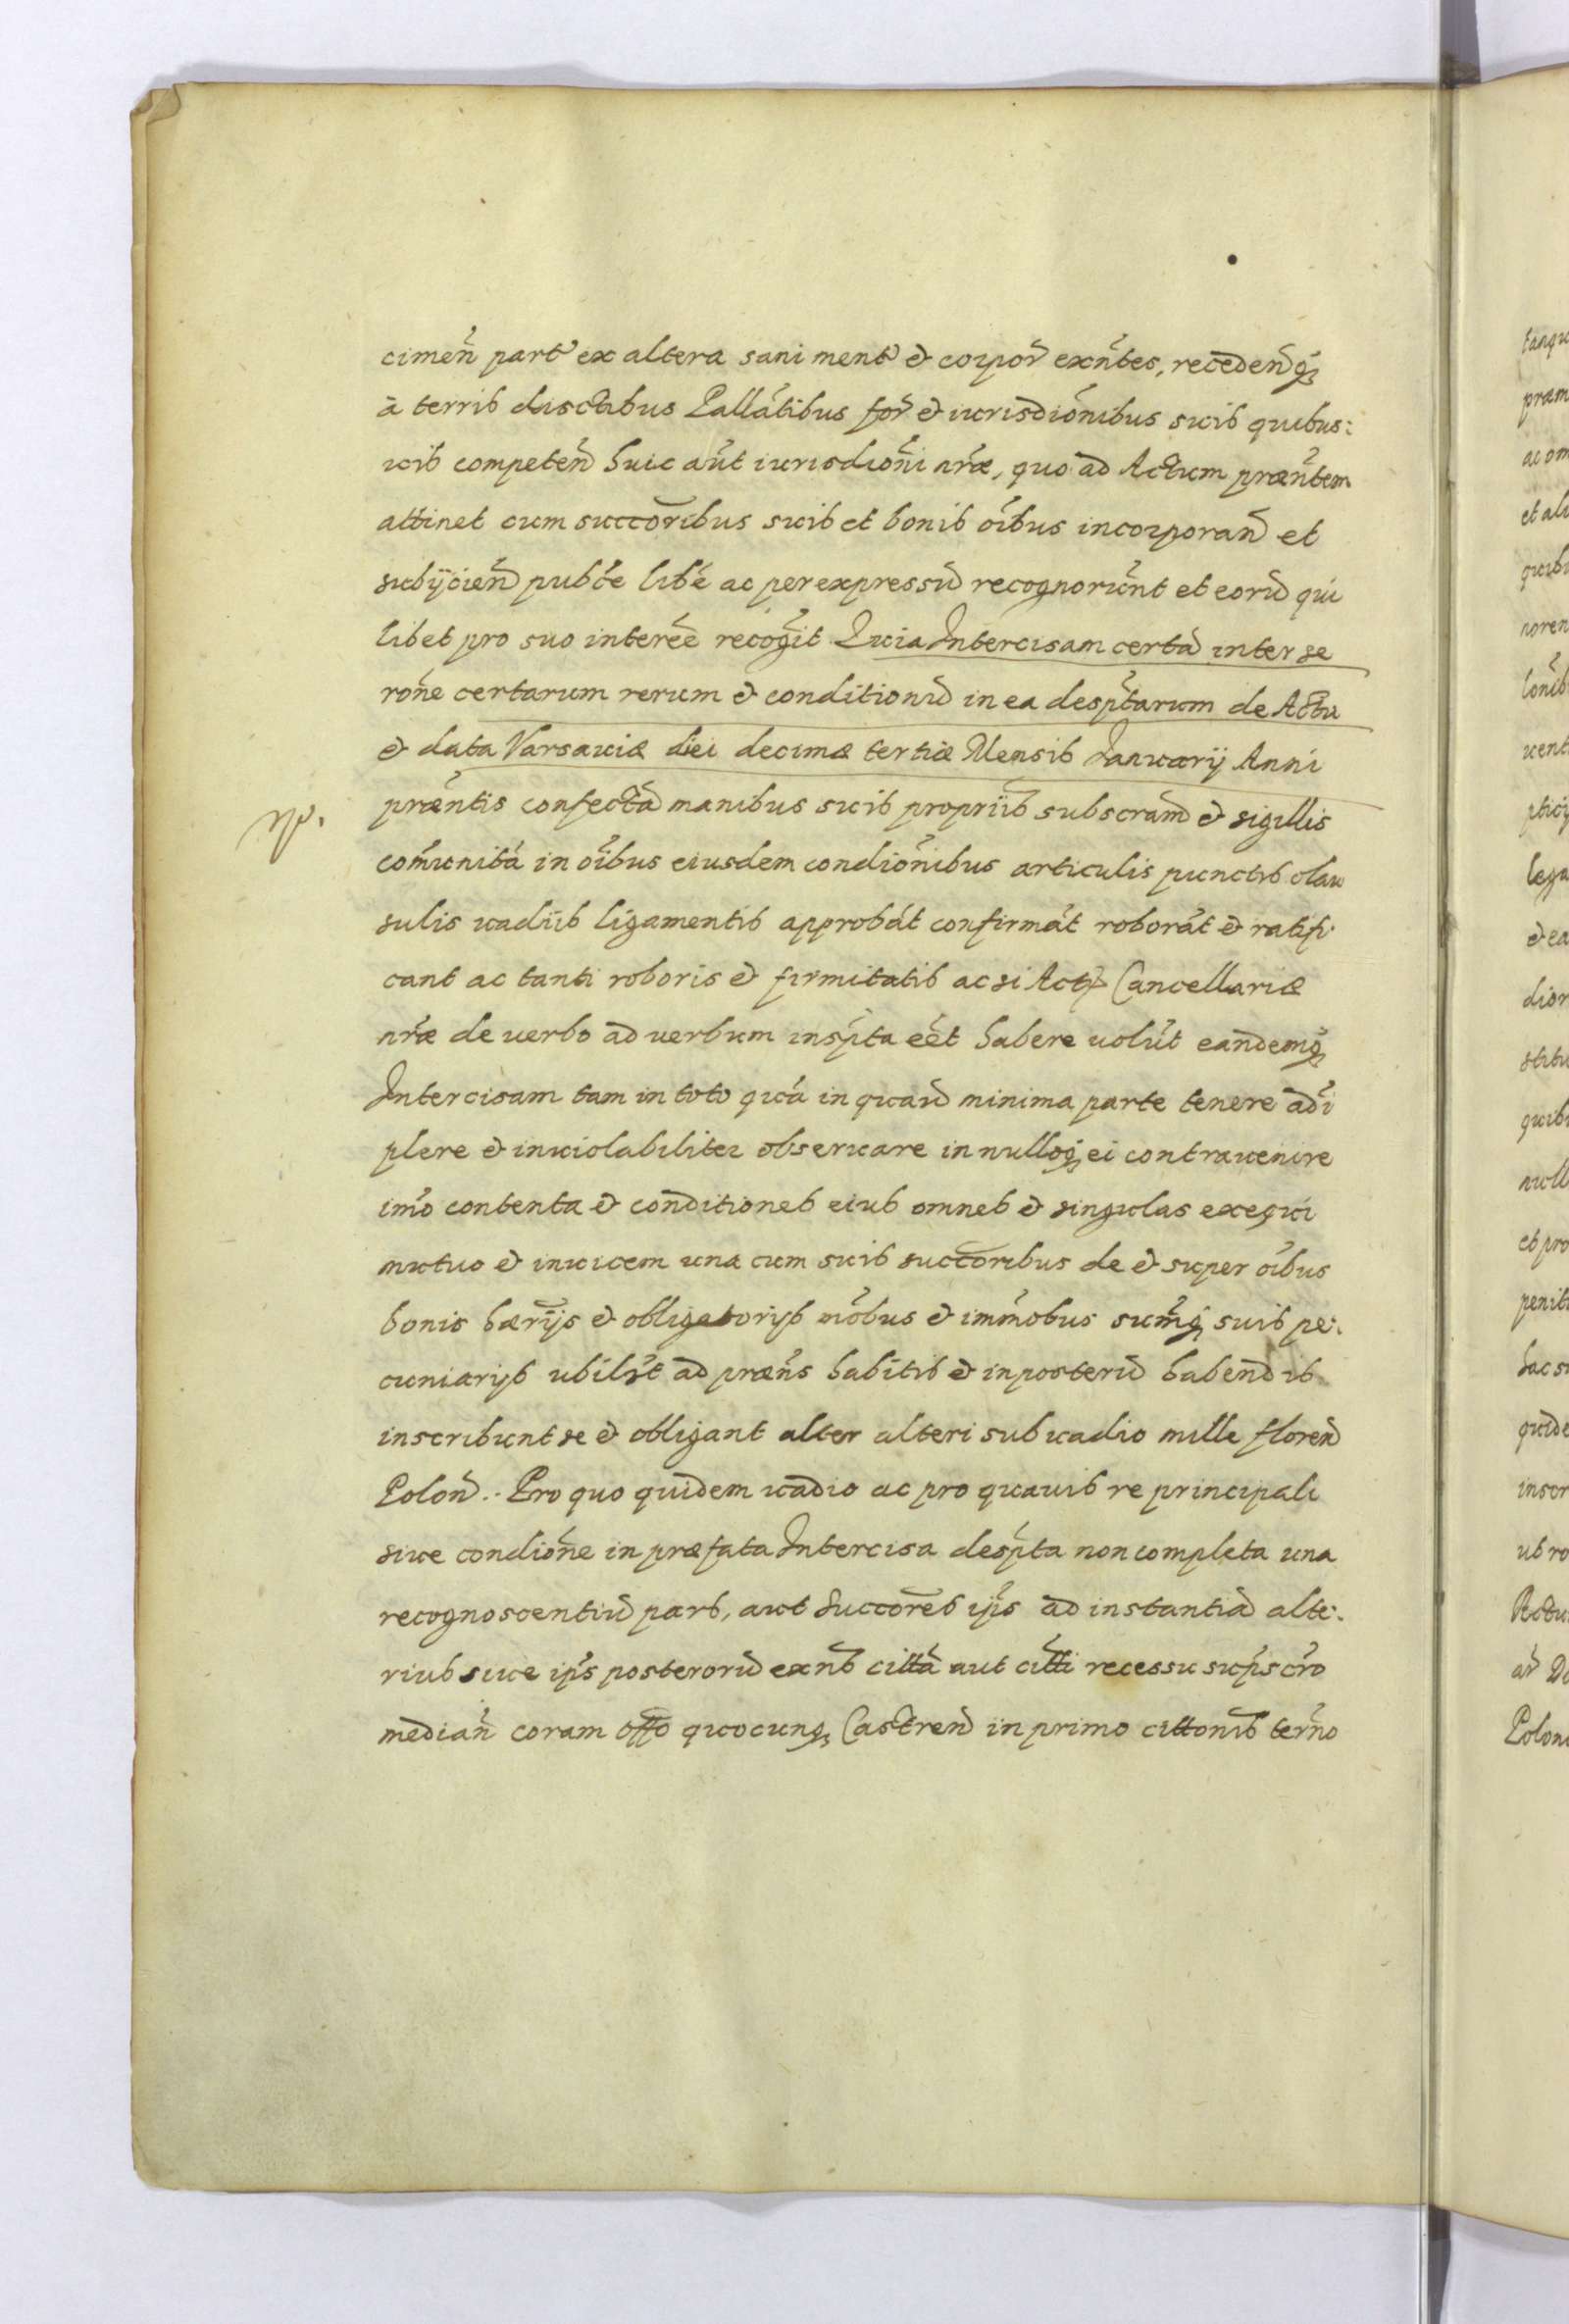 cimen̄ part ex altera sani ment & corpor exñtes, recedenq̨
à terris disctibus Pallãtibus for & iurisdiõnibus suis quibus:
uis competen̄ huic aũt iurisdioñi nr̃æ, quo ad Actum præñtem
attinet cum succoribus suis et bonis oĩbus incorporan̄ et
subijcien̄ pubc̃e libẽ ac per expressũ recognorũnt et eorũ qui
libet pro suo interẽe recog̃it Quia Intercisam certã inter se
roñe certarum rerum & conditionũ in ea desp̃tarum de Actu
& data Varsauiæ diei decimæ tertiæ Mensis Januarij Anni
præntis confectã manibus suis proprijs subscram̄ & sigillis
com̃unitã in oĩbus eiusdem condioñibus articulis punctis clau
sulis uadijs ligamentis approbãt confirmãt roborãt & ratifi
cant ac tanti roboris & firmitatis ac si Actis Cancellariæ
nr̃æ de uerbo ad uerbum insp̃ta eẽt habere uolũt eandemq̨
Intercisam tam in toto quã in quauis minima parte tenere adĩ
plere & inuiolabiliter obseruare in nulloq̨ ei contrauenire
im̃o contenta & conditiones eius omnes & singulas exequi
mutuo & inuicem una cum suis succoribus de & super oĩbus
bonis hærijs & obligatorijs mõbus & im̃mobus sum̃q̨ suis pe:
cuniarijs ubilĩt ad præñs habitis & in posterũ habendis
inscribunt se & obligant alter alteri sub uadio mille floren̄
Polon̄.. Pro quo quidem uadio ac pro quauis re principali
siue condioñe in præfata Intercisa desp̃ta non completa una
recognoscentiũ pars, aut Succores ip̃s ad instantiã alte:
rius siue ip̃s posterorũ exñs cittã aut citti recessu sup̃scr̃o
median̄ coram offo quocunq̨ Castren̄ in primo cittonis ter̃no